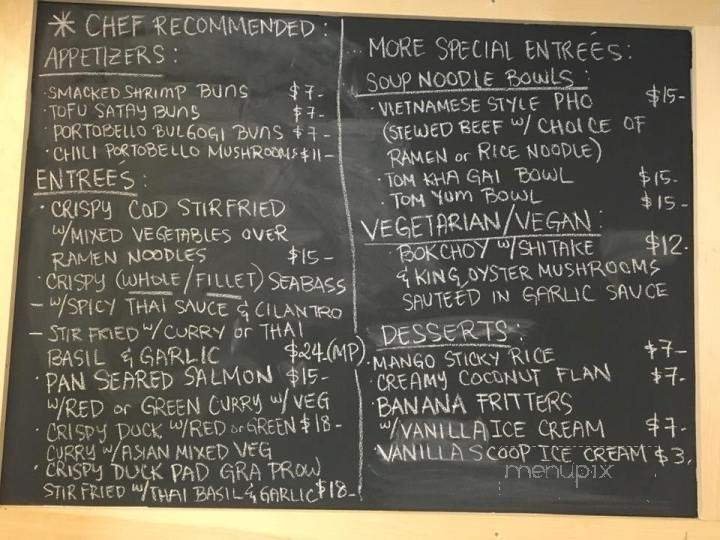 * CHEF RECOMMENDED:
APPETIZERS:
·SMACKED SHRIMP BUNS $7-
·TOFU SATAY BUNS $7-
·PORTOBELLO BULGOGI BUNS $7-
·CHILI PORTOBELLO MUSHROOMS $11-
ENTREES:
·CRISPY COD STIRFRIED
W/MIXED VEGETABLES OVER
RAMEN NOODLES $15-
·CRISPY (WHOLE/FILLET) SEABASS
- W/SPICY THAI SAUCE & CILANTRO
- STIR FRIED W/CURRY or THAI
BASIL & GARLIC $24(MP)
·PAN SEARED SALMON $15-
W/RED or GREEN CURRY W/VEG
·CRISPY DUCK W/RED or GREEN $18-
CURRY W/ASIAN MIXED VEG
·CRISPY DUCK PAD GRA PROW
STIR FRIED W/THAI BASIL & GARLIC $18-
...MORE SPECIAL ENTREÉS:
SOUP NOODLE BOWLS:
·VIETNAMESE STYLE PHO $15-
(STEWED BEEF W/ CHOICE OF
RAMEN or RICE NOODLE)
·TOM KHA GAI BOWL $15-
·TOM YUM BOWL $15-
VEGETARIAN/VEGAN:
·BOKCHOY W/SHITAKE $12·
& KING OYSTER MUSHROOMS
SAUTEÉD IN GARLIC SAUCE
DESSERTS:
·MANGO STICKY RICE $7-
·CREAMY COCONUT FLAN $7-
·BANANA FRITTERS
W/VANILLA ICE CREAM $7-
·VANILLA SCOOP ICE CREAM $3,
menupix